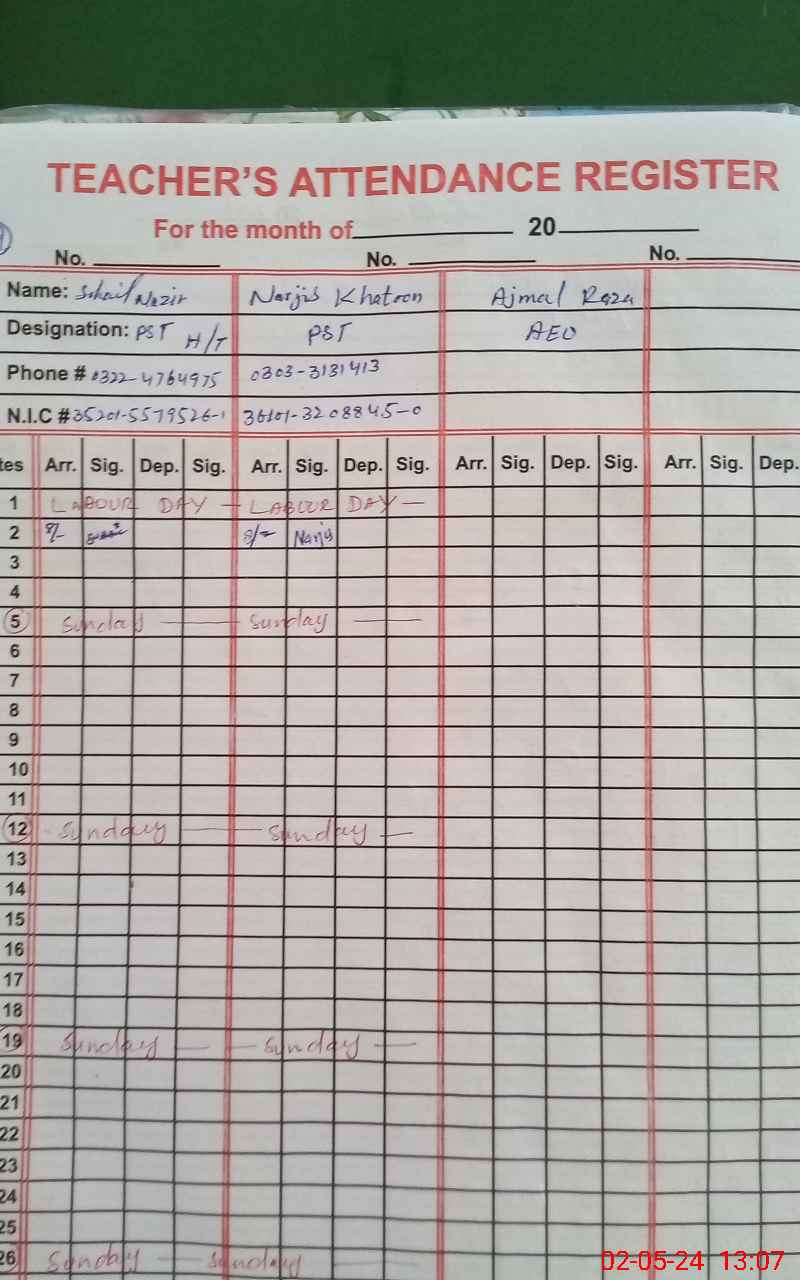 TEACHER'S ATTENDANCE REGISTER
For the month of 20
No. No. No.
Name: Sohail Nazir Narjis Khatoon Ajmal Raza
Designation: PST H/T PST AEO
Phone # 0322-4764975 0303-3131413
N.I.C # 35201-5579526-1 36101-3208845-0
tes Arr. Sig. Dep. Sig. Arr. Sig. Dep. Sig. Arr. Sig. Dep. Sig. Arr. Sig. Dep.
1 LABOUR DAY — LABOUR DAY —
2 8/- 8/= Narjis
3
4
5 Sunday — Sunday —
6
7
8
9
10
11
12 Sunday — Sunday —
13
14
15
16
17
18
19 Sunday — Sunday —
20
21
22
23
24
25
26 Sunday — Sunday
02-05-24 13:07